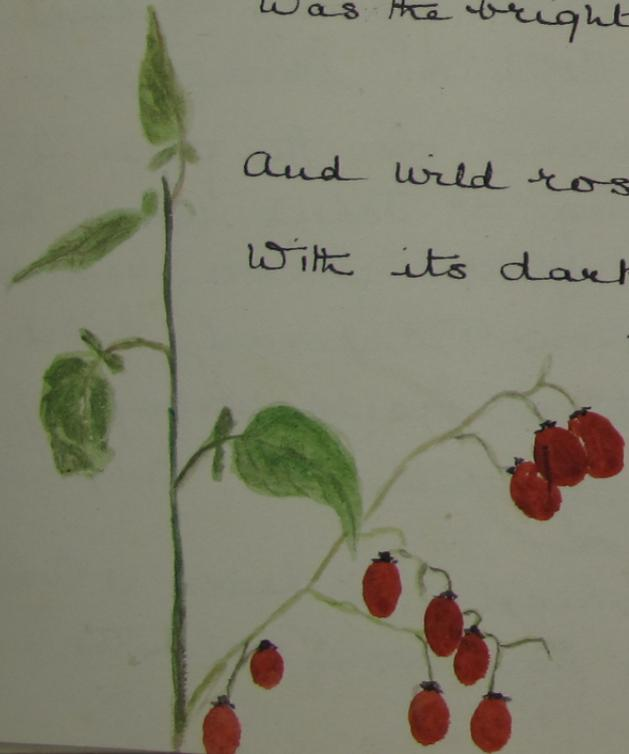 Was the bright
And wild ros
With its dark